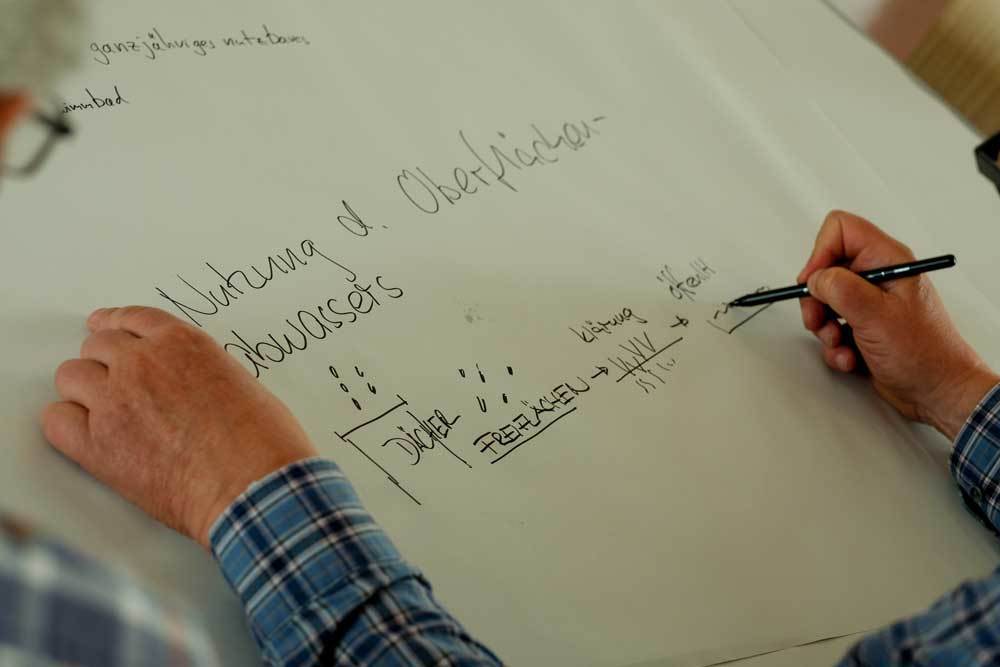 ganzjähriges nutzbares
immbad
Nutzung d. Oberflächen-
abwassers
DÄCHER
FREIFLÄCHEN
klärung